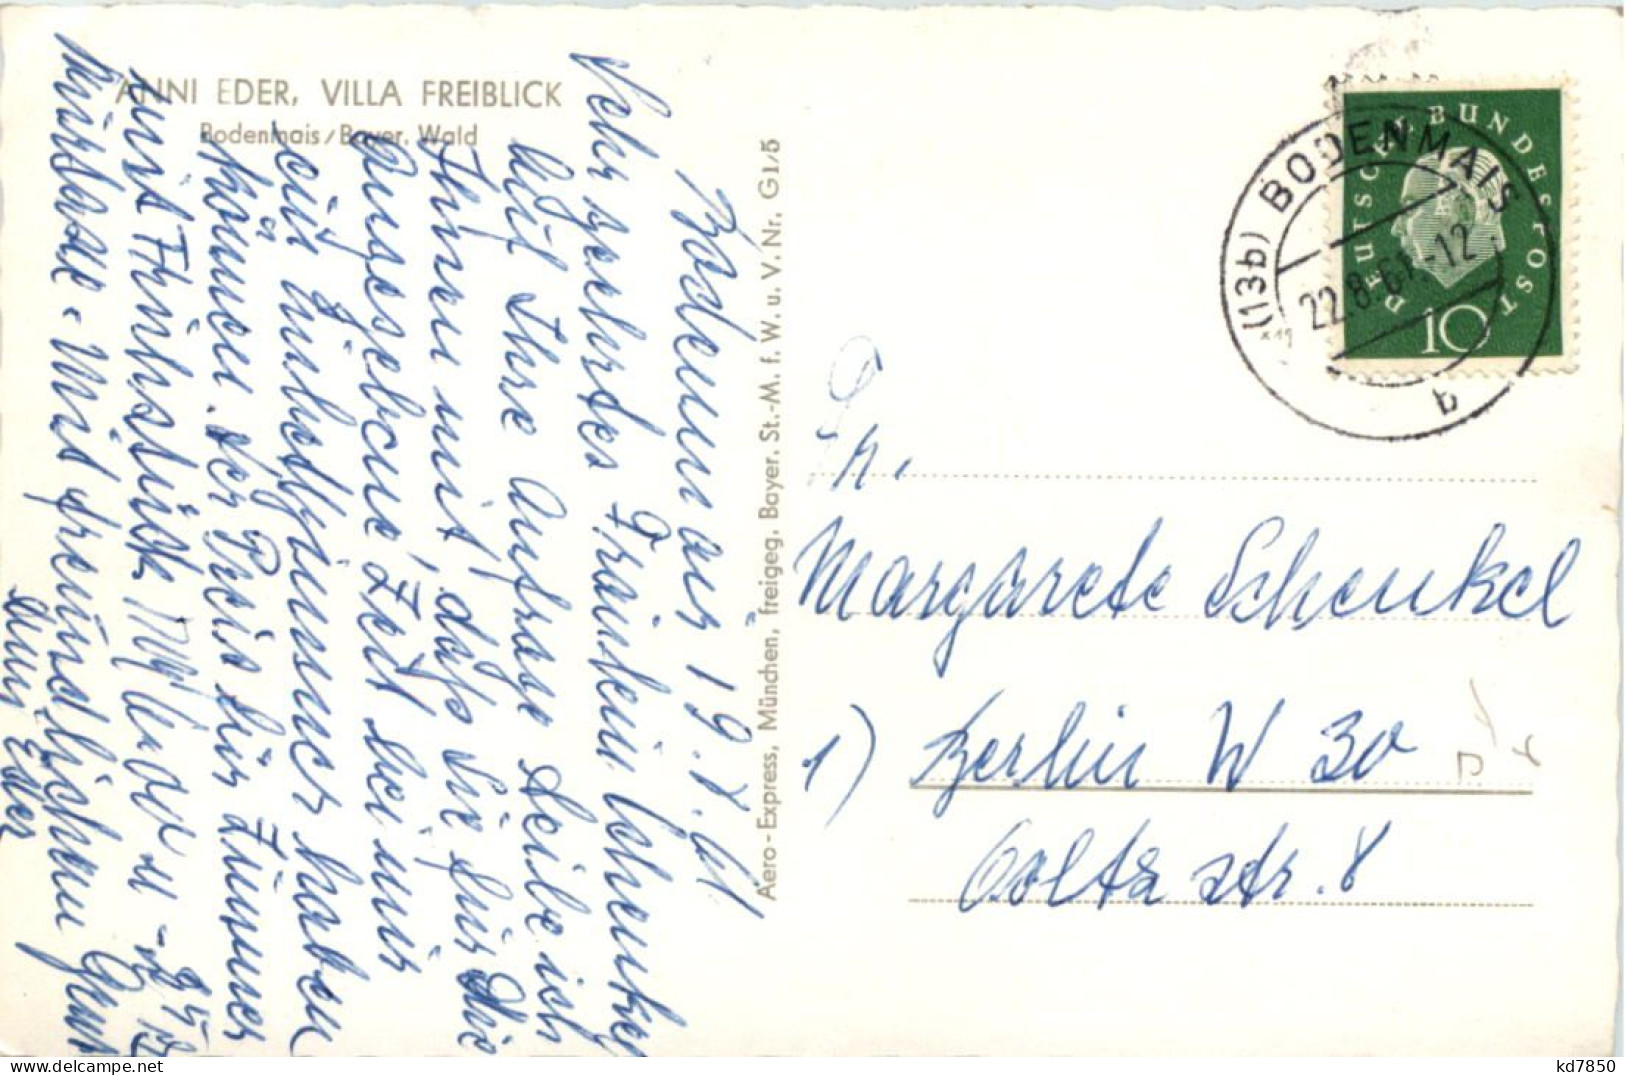 ANNI EDER, VILLA FREIBLICK
Bodenmais/Bayer. Wald
Bodenmais 19.8.61
Sehr geehrtes Fräulein Schenkel
Auf Ihre Anfrage teile ich
Ihnen mit, dass Sie für die
angegebene Zeit bei mir
ein Einbettzimmer haben
können. Der Preis für Zimmer
mit Frühstück
Kurtaxe. Mit freundlichen Gruß
Anni Eder
Aero-Express, München, freigeg. Bayer. St.-M. f. W. u. V. Nr. G 1/5
DEUTSCHE BUNDESPOST
10
(13b) BODENMAIS
22.8.61.-12
b
Fr.
Margarete Schenkel
1) Berlin W 30
Goltzstr. 8
kd7850